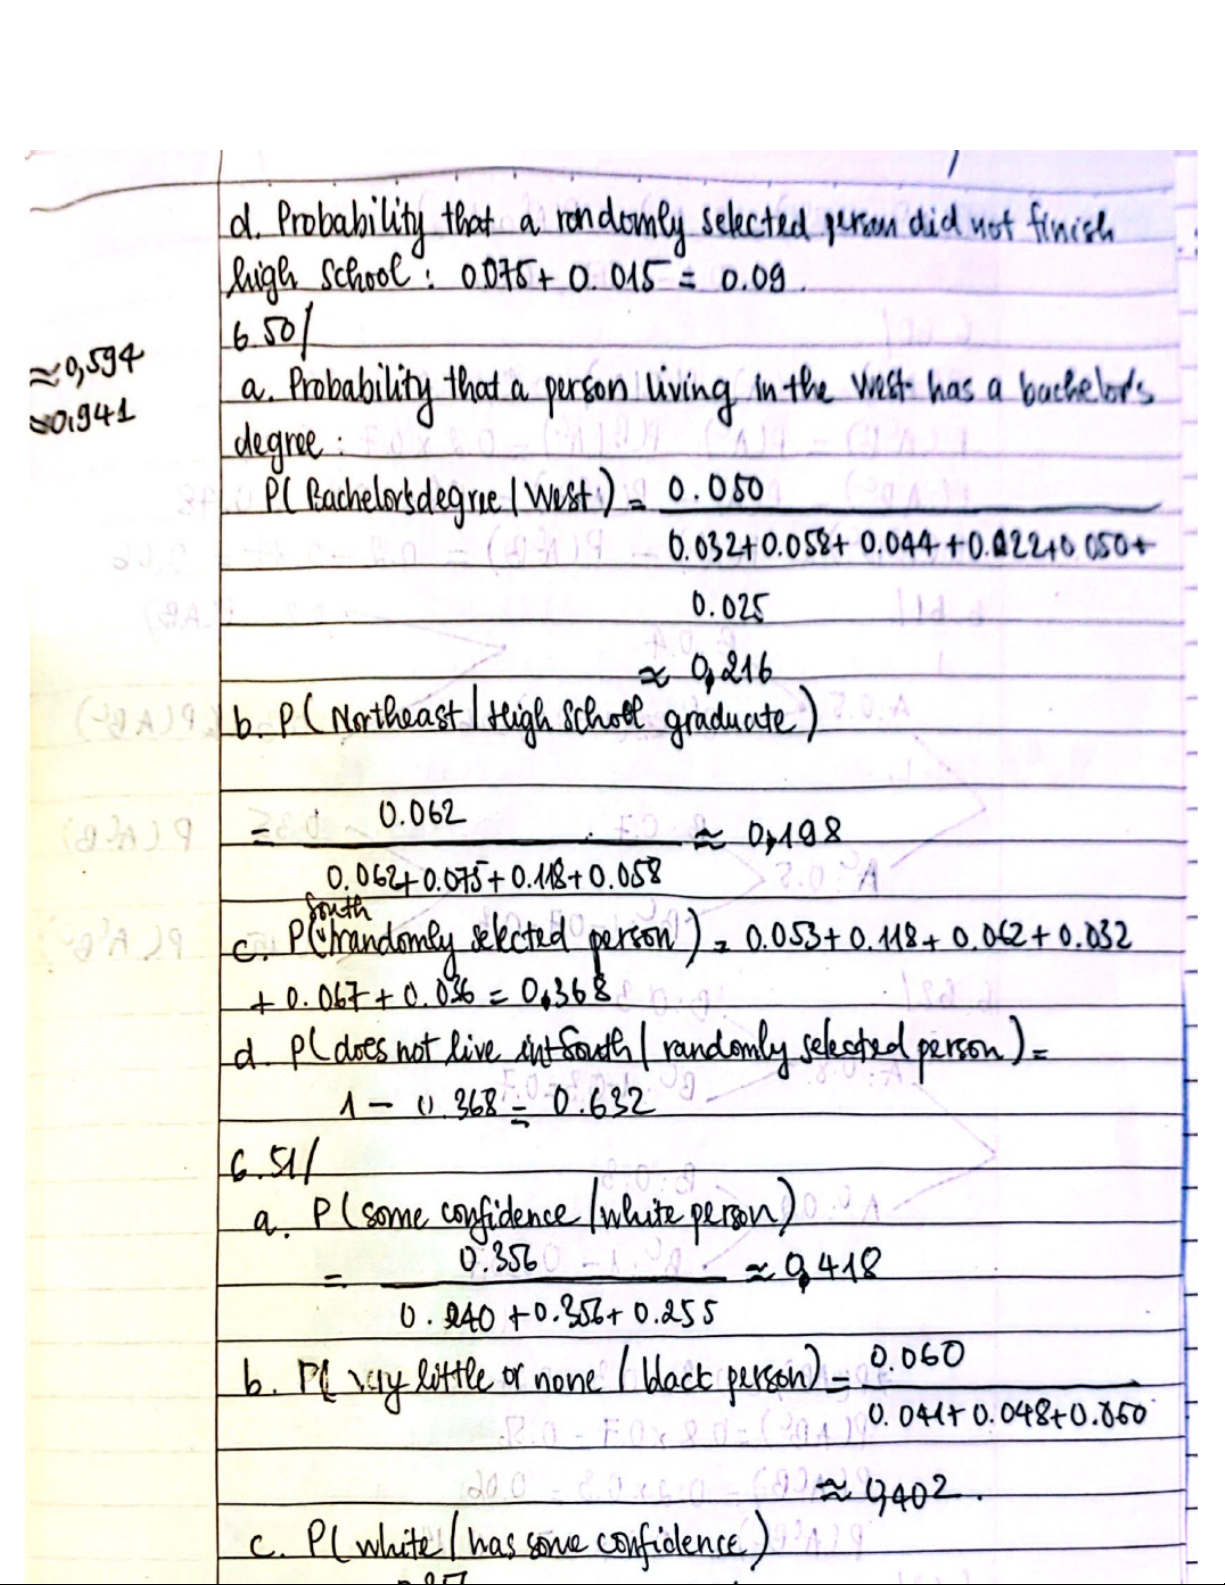 d. Probability that a randomly selected person did not finish
high school : 0.075 + 0.015 = 0.09.
6.50/
≈0,594
≈0.941
a. Probability that a person living in the West has a bachelor's
degree :
P( Bachelor's degree / West ) = 0.050
0.032+0.058+ 0.044 +0.022+0.050+
0.025
≈ 0,216
b. P( Northeast / High School graduate )
= 0.062 ≈ 0,198
0.062+0.075+0.118+0.058
South
c. P( / randomly selected person ) = 0.053+0.118+0.062+0.032
+ 0.067+0.036 = 0,368
d. P( does not live in South / randomly selected person ) =
1 - 0.368 = 0.632
6.51/
a. P( some confidence / white person )
= 0.356 ≈ 0,418
0.240 +0.356+ 0.255
b. P( very little or none / black person) = 0.060
0.041+ 0.048+0.060
≈ 0,402.
c. P( white / has some confidence )